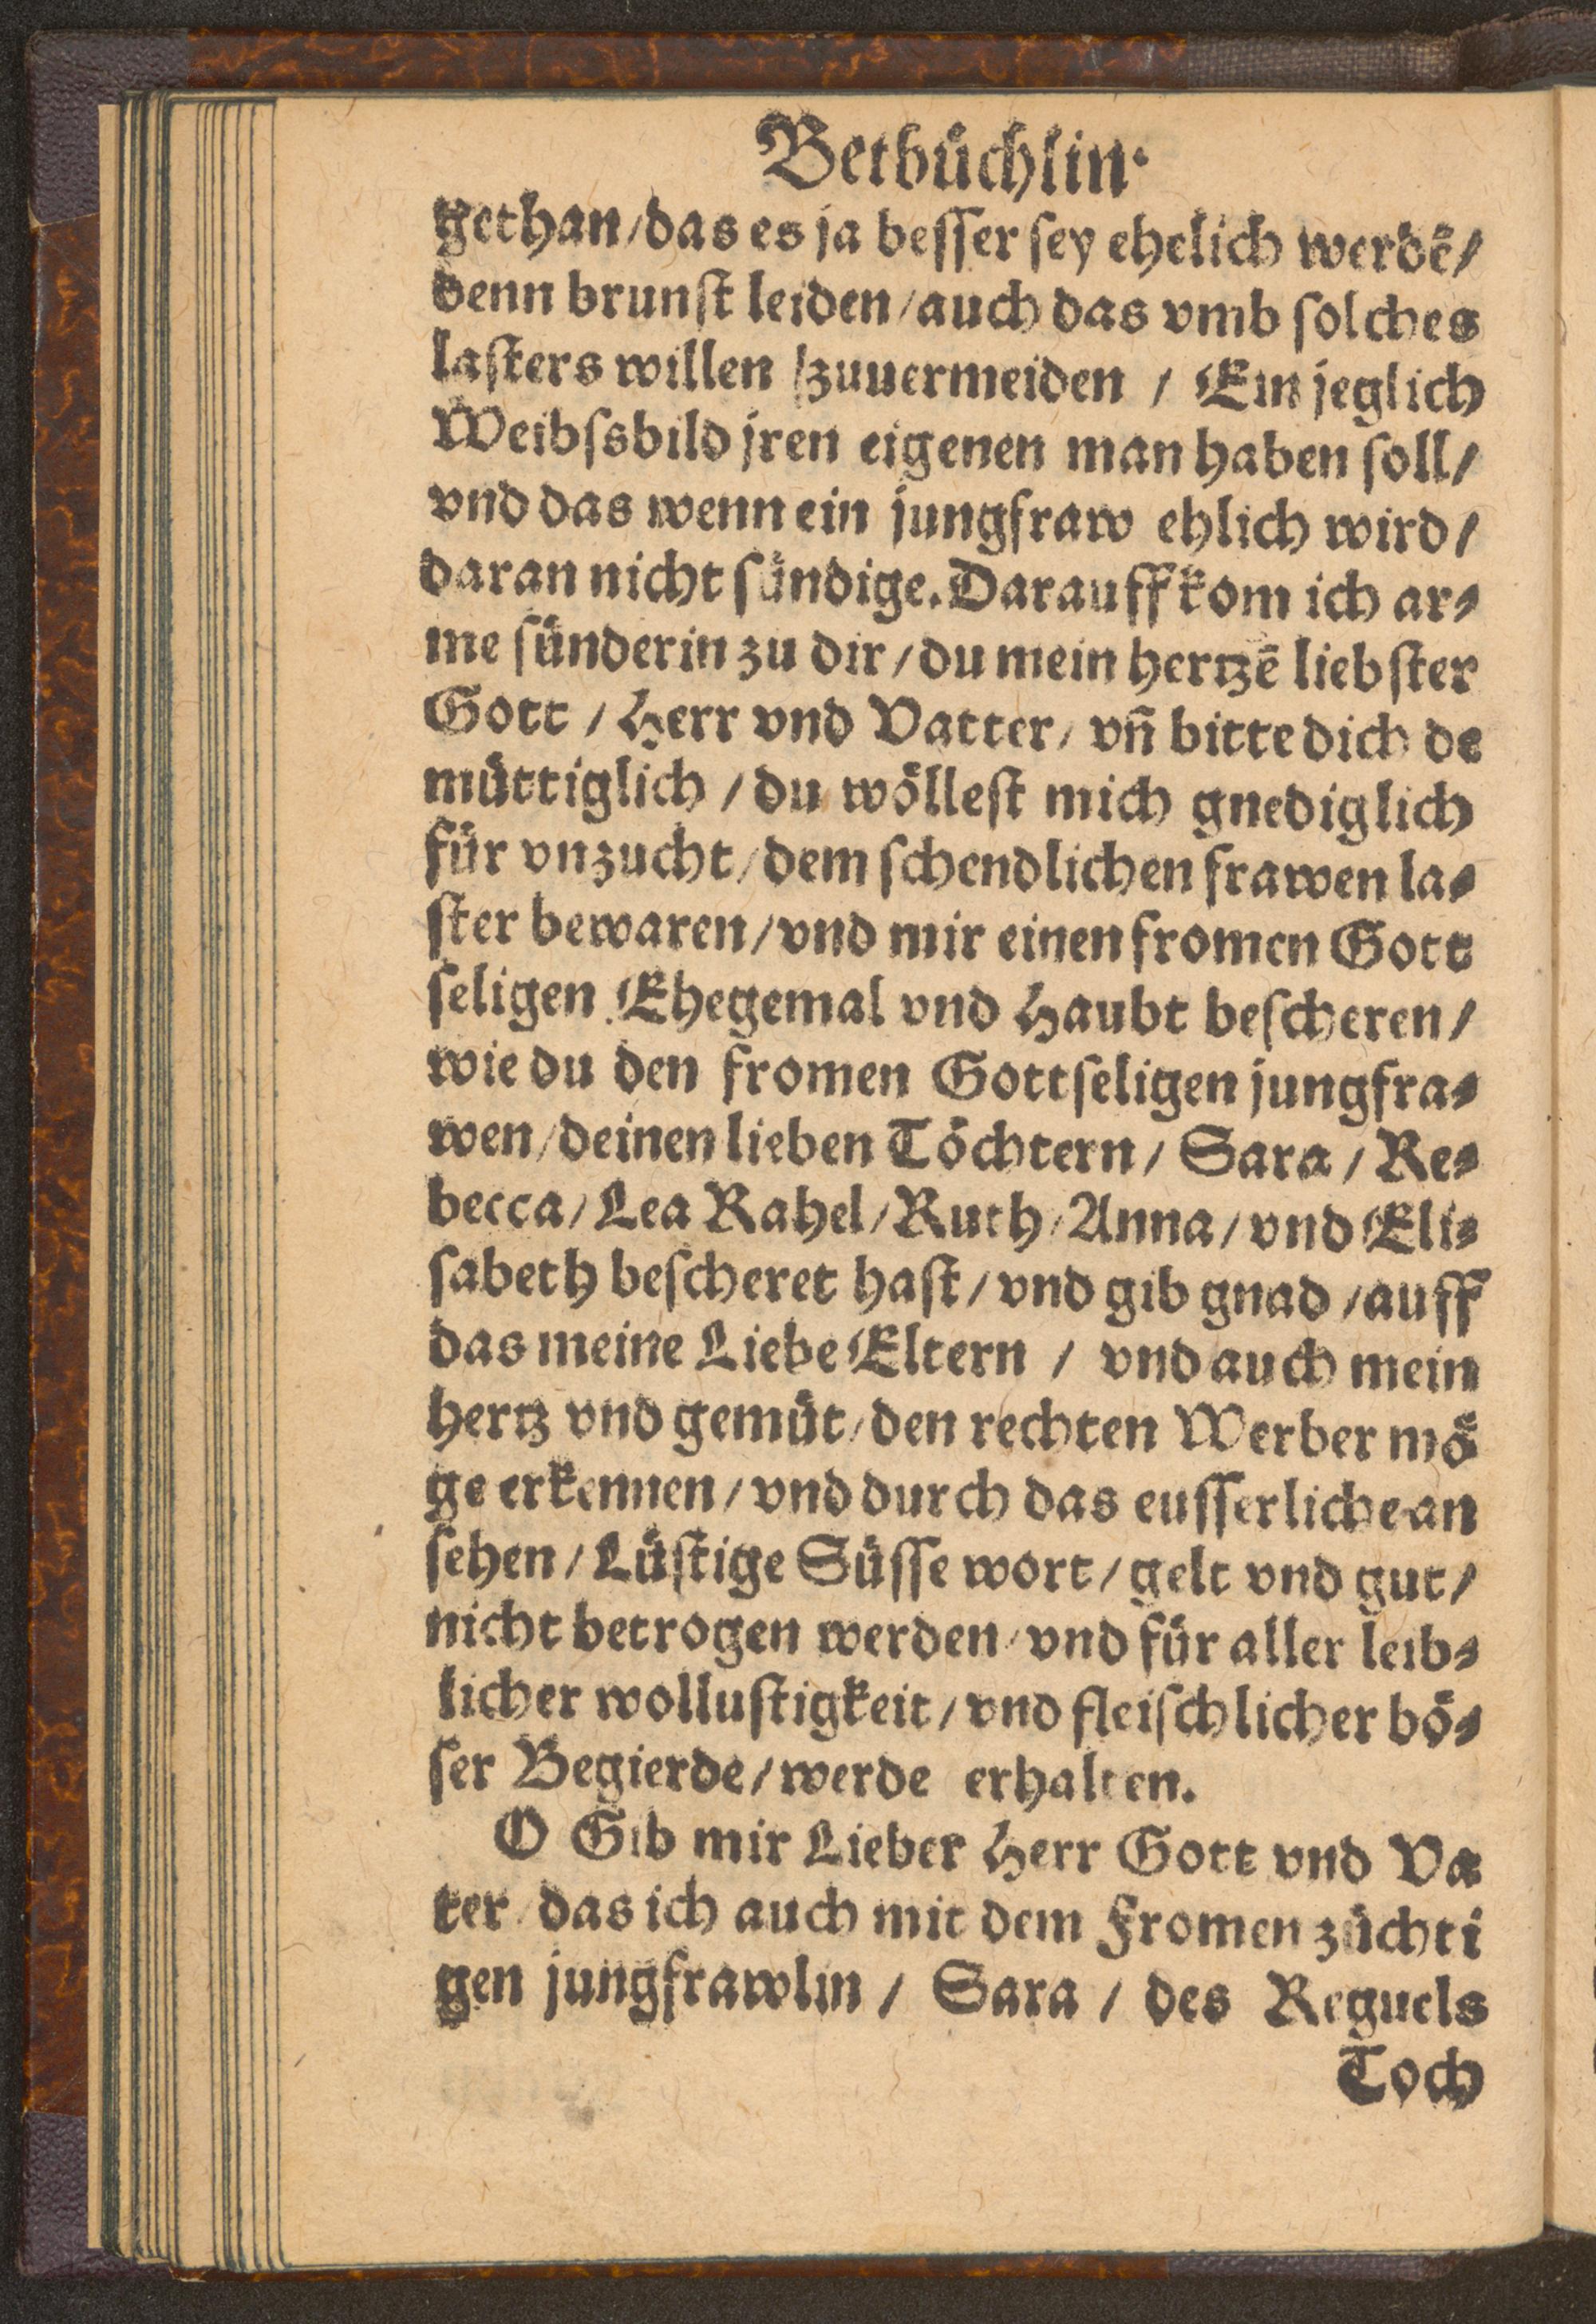 Betbüchlin.
gethan/das es ja besser sey ehelich werdē/
denn brunst leiden/auch das vmb solches
lasters willen /zuuermeiden / Ein jeglich
Weibssbild jren eigenen man haben soll/
vnd das wenn ein jungfraw ehlich wird/
daran nicht sündige. Darauff kom ich ar-
me sünderin zu dir/du mein hertzē liebster
Gott / Herr vnd Vatter/ vñ bitte dich de
müttiglich / du wöllest mich gnediglich
für vnzucht/dem schendlichen frawen la-
ster bewaren/vnd mir einen fromen Gott
seligen Ehegemal vnd Haubt bescheren/
wie du den fromen Gottseligen jungfra-
wen/deinen lieben Töchtern/ Sara/ Re-
becca/ Lea Rahel/Ruth/Anna/vnd Eli-
sabeth bescheret hast/vnd gib gnad/auff
das meine Liebe Eltern / vnd auch mein
hertz vnd gemüt/den rechten Werber mö
ge erkennen/vnd durch das eusserliche an
sehen/Lüstige Süsse wort/gelt vnd gut/
nicht betrogen werden/vnd für aller leib-
licher wollustigkeit/vnd fleischlicher bö-
ser Begierde/werde erhalten.
O Gib mir Lieber Herr Gott vnd Va
ter/ das ich auch mit dem Fromen züchti
gen jungfrawlin / Sara / des Reguels
Toch